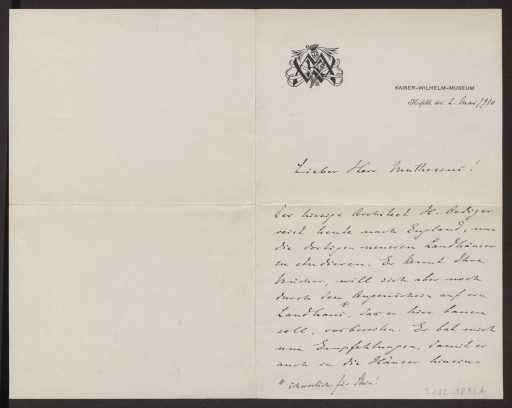 KAISER-WILHELM-MUSEUM
Krefeld, den 2. Mai 1910
Lieber Herr Muthesius!
Der hiesige Architekt K.
reist heute nach England, um
die dortigen neueren Landhäuser
zu studieren. Er kennt Ihre
Bücher, will sich aber noch
durch den Augenschein auf ein
Landhaus, das er hier bauen
soll, vorbereiten. Er bat mich
um Empfehlungen, damit er
auch in die Häuser hinein-
für